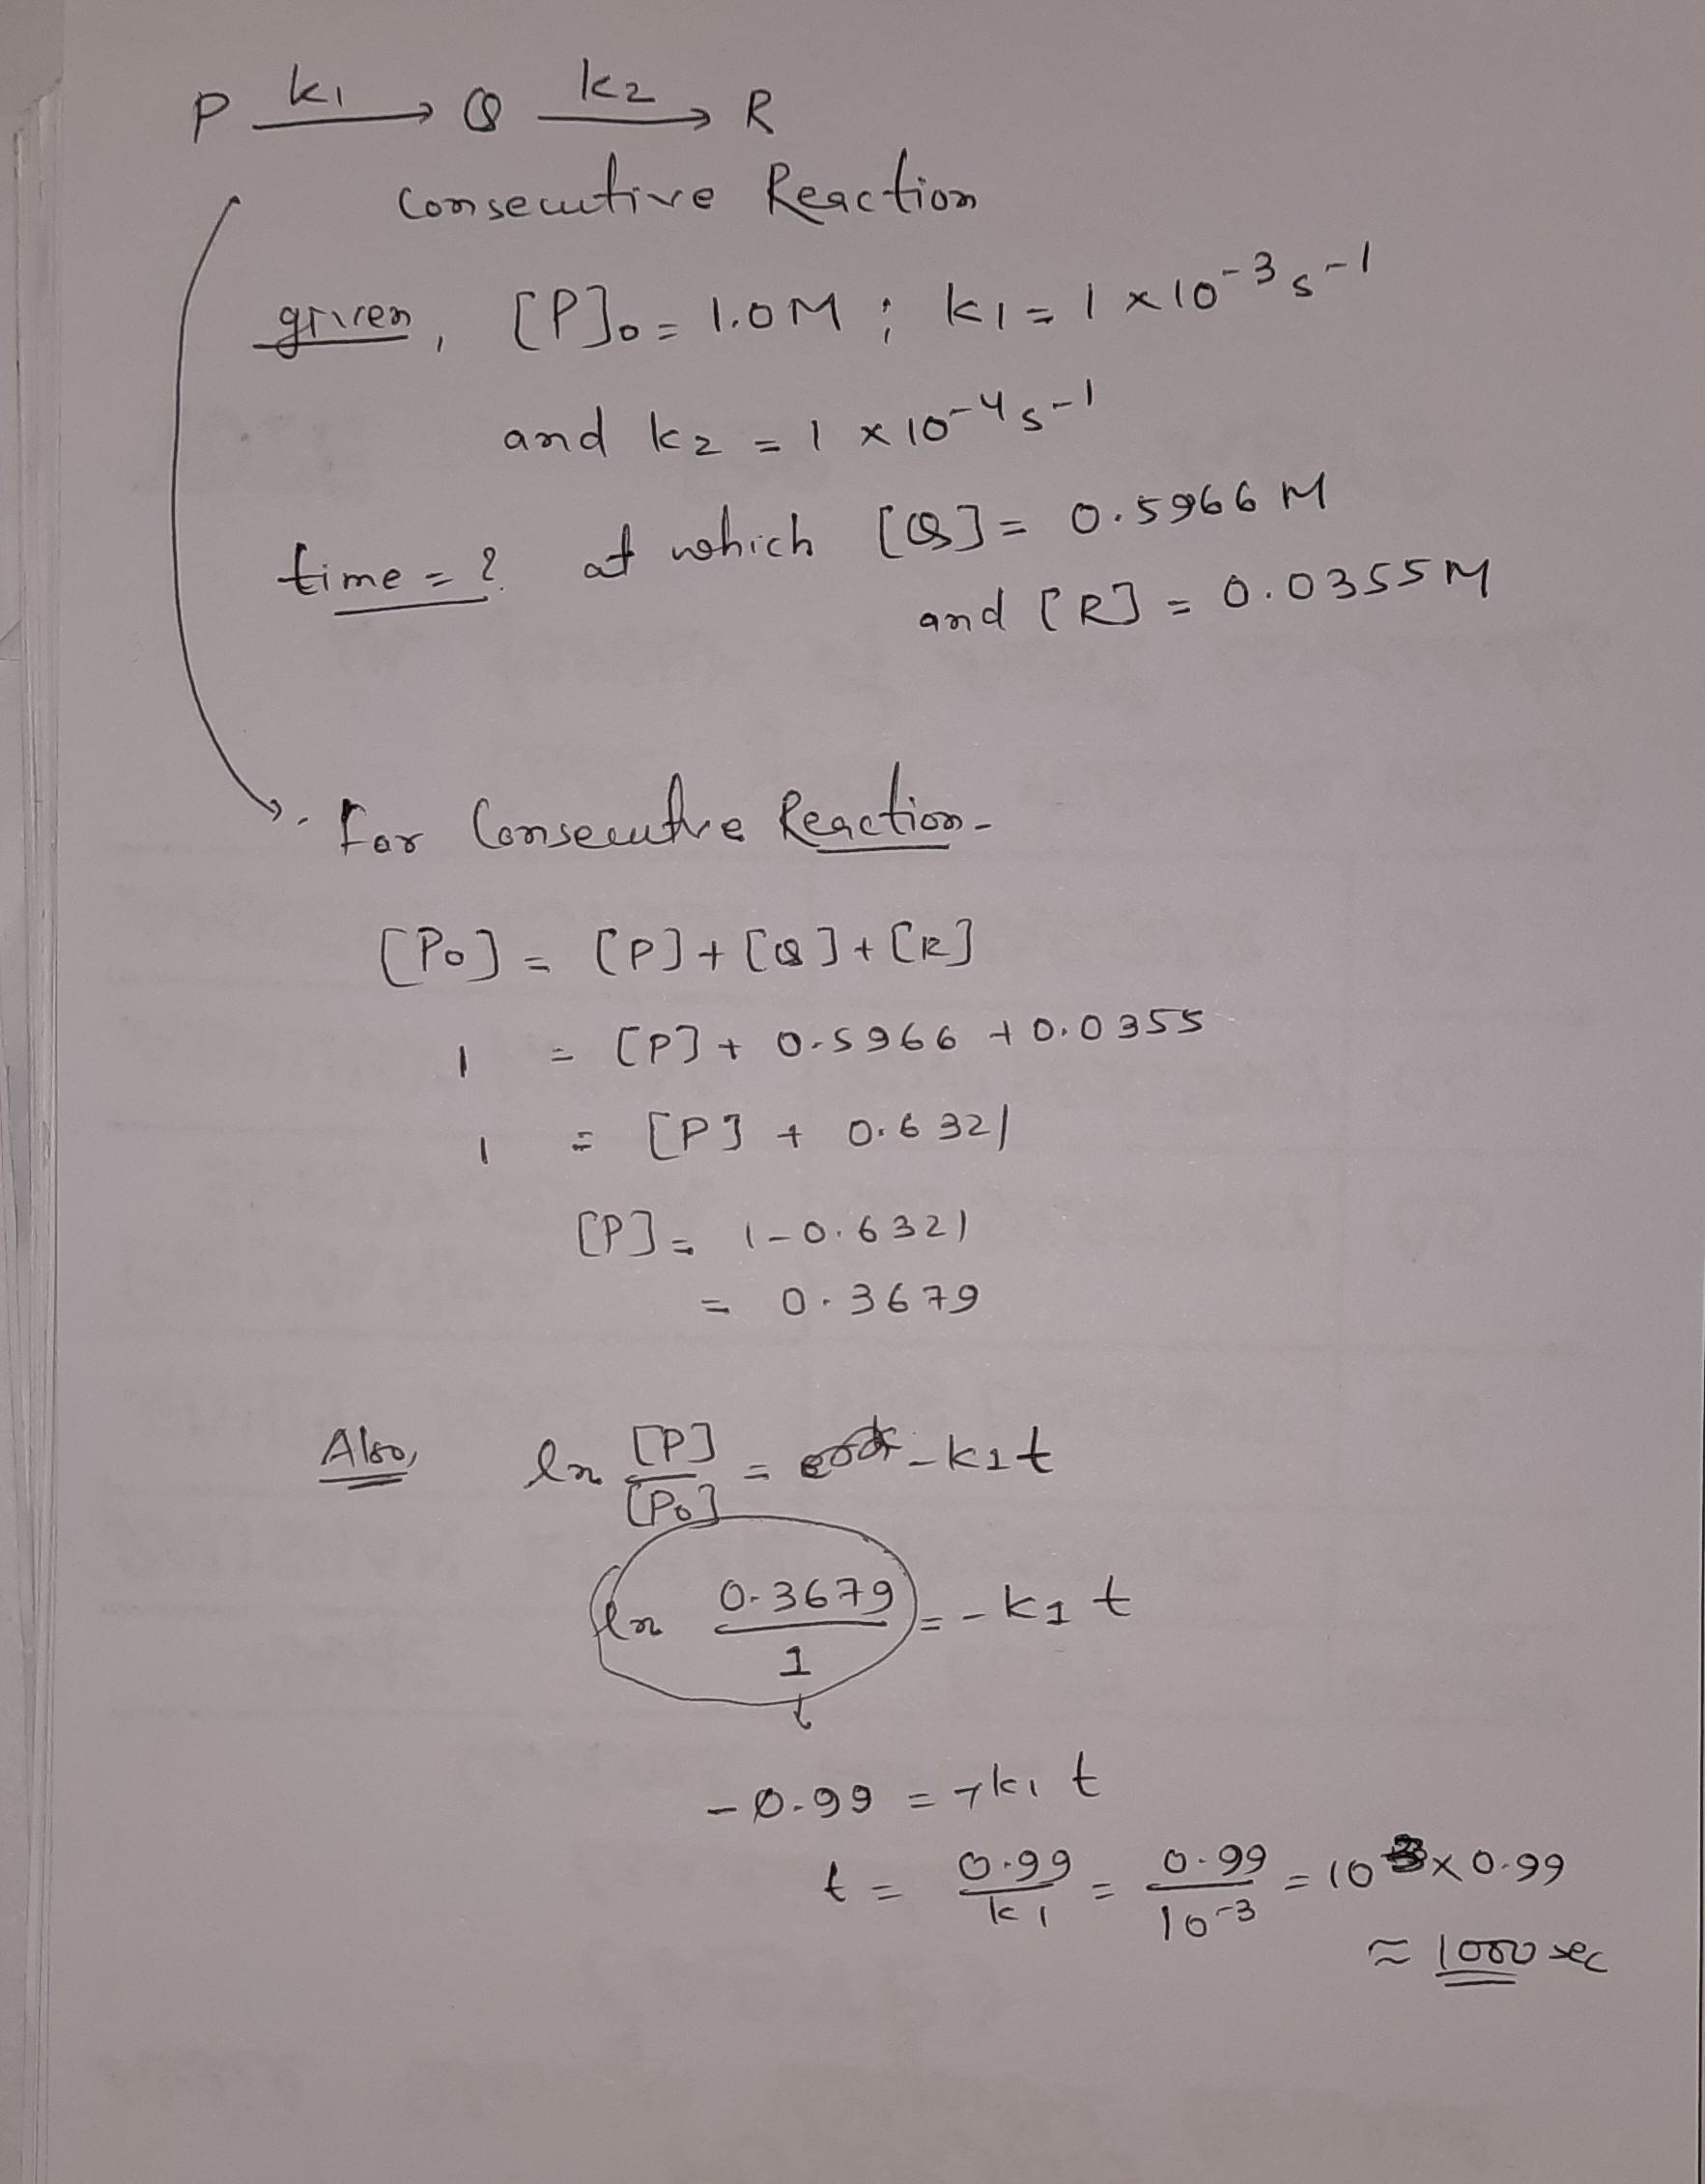 P —k1→ Q —k2→ R
Consecutive Reaction
given, [P]₀ = 1.0M ; k1 = 1 × 10⁻³ s⁻¹
and k2 = 1 × 10⁻⁴ s⁻¹
time = ? at which [Q] = 0.5966 M
and [R] = 0.0355M
For Consecutive Reaction-
[P₀] = [P] + [Q] + [R]
1 = [P] + 0.5966 + 0.0355
1 = [P] + 0.6321
[P] = 1-0.6321
= 0.3679
Also, ln [P]/[P₀] = -k1t
ln 0.3679/1 = -k1 t
-0.99 = -k1 t
t = 0.99/k1 = 0.99/10⁻³ = 10³ × 0.99
≈ 1000 sec